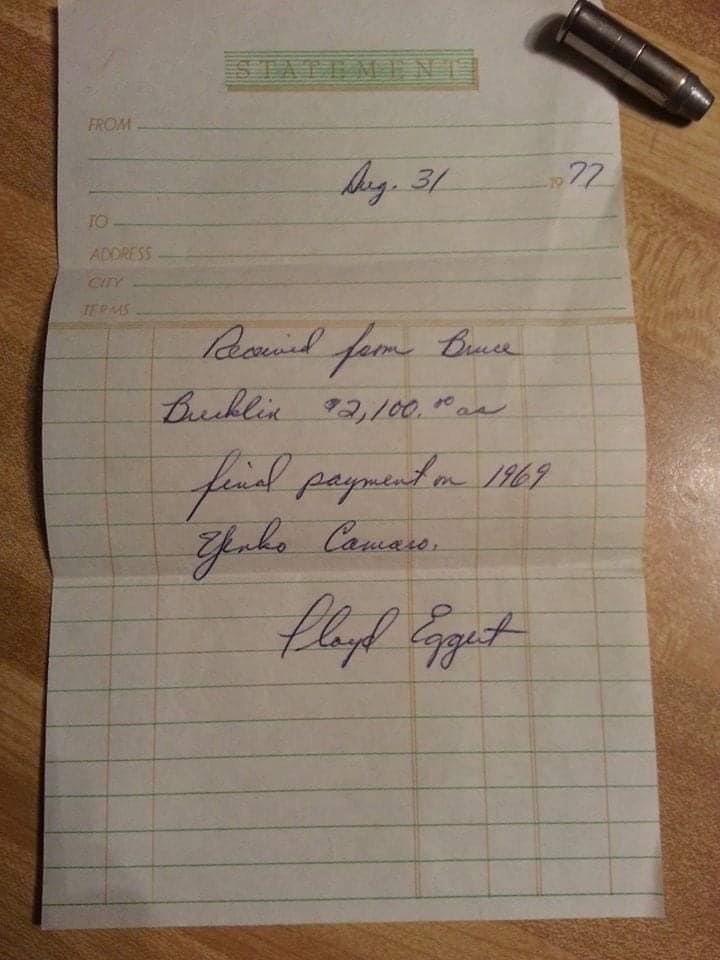 STATEMENT
FROM
Aug. 31 1977
TO
ADDRESS
CITY
TERMS
Received from Bruce
$2,100.00 as
final payment on 1969
Yenko Camaro.
Floyd Eggert